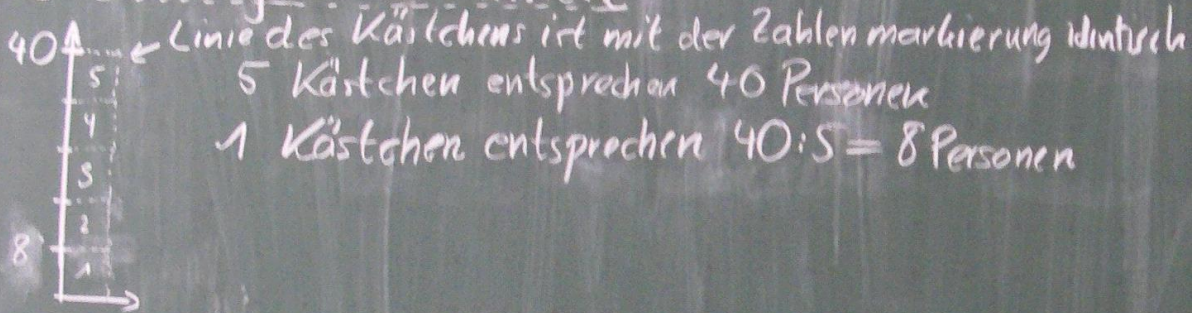 40 Linie des Kästchens ist mit der Zahlenmarkierung identisch
5 Kästchen entsprechen 40 Personen
1 Kästchen entsprechen 40:5 = 8 Personen
5
4
3
2
8
1